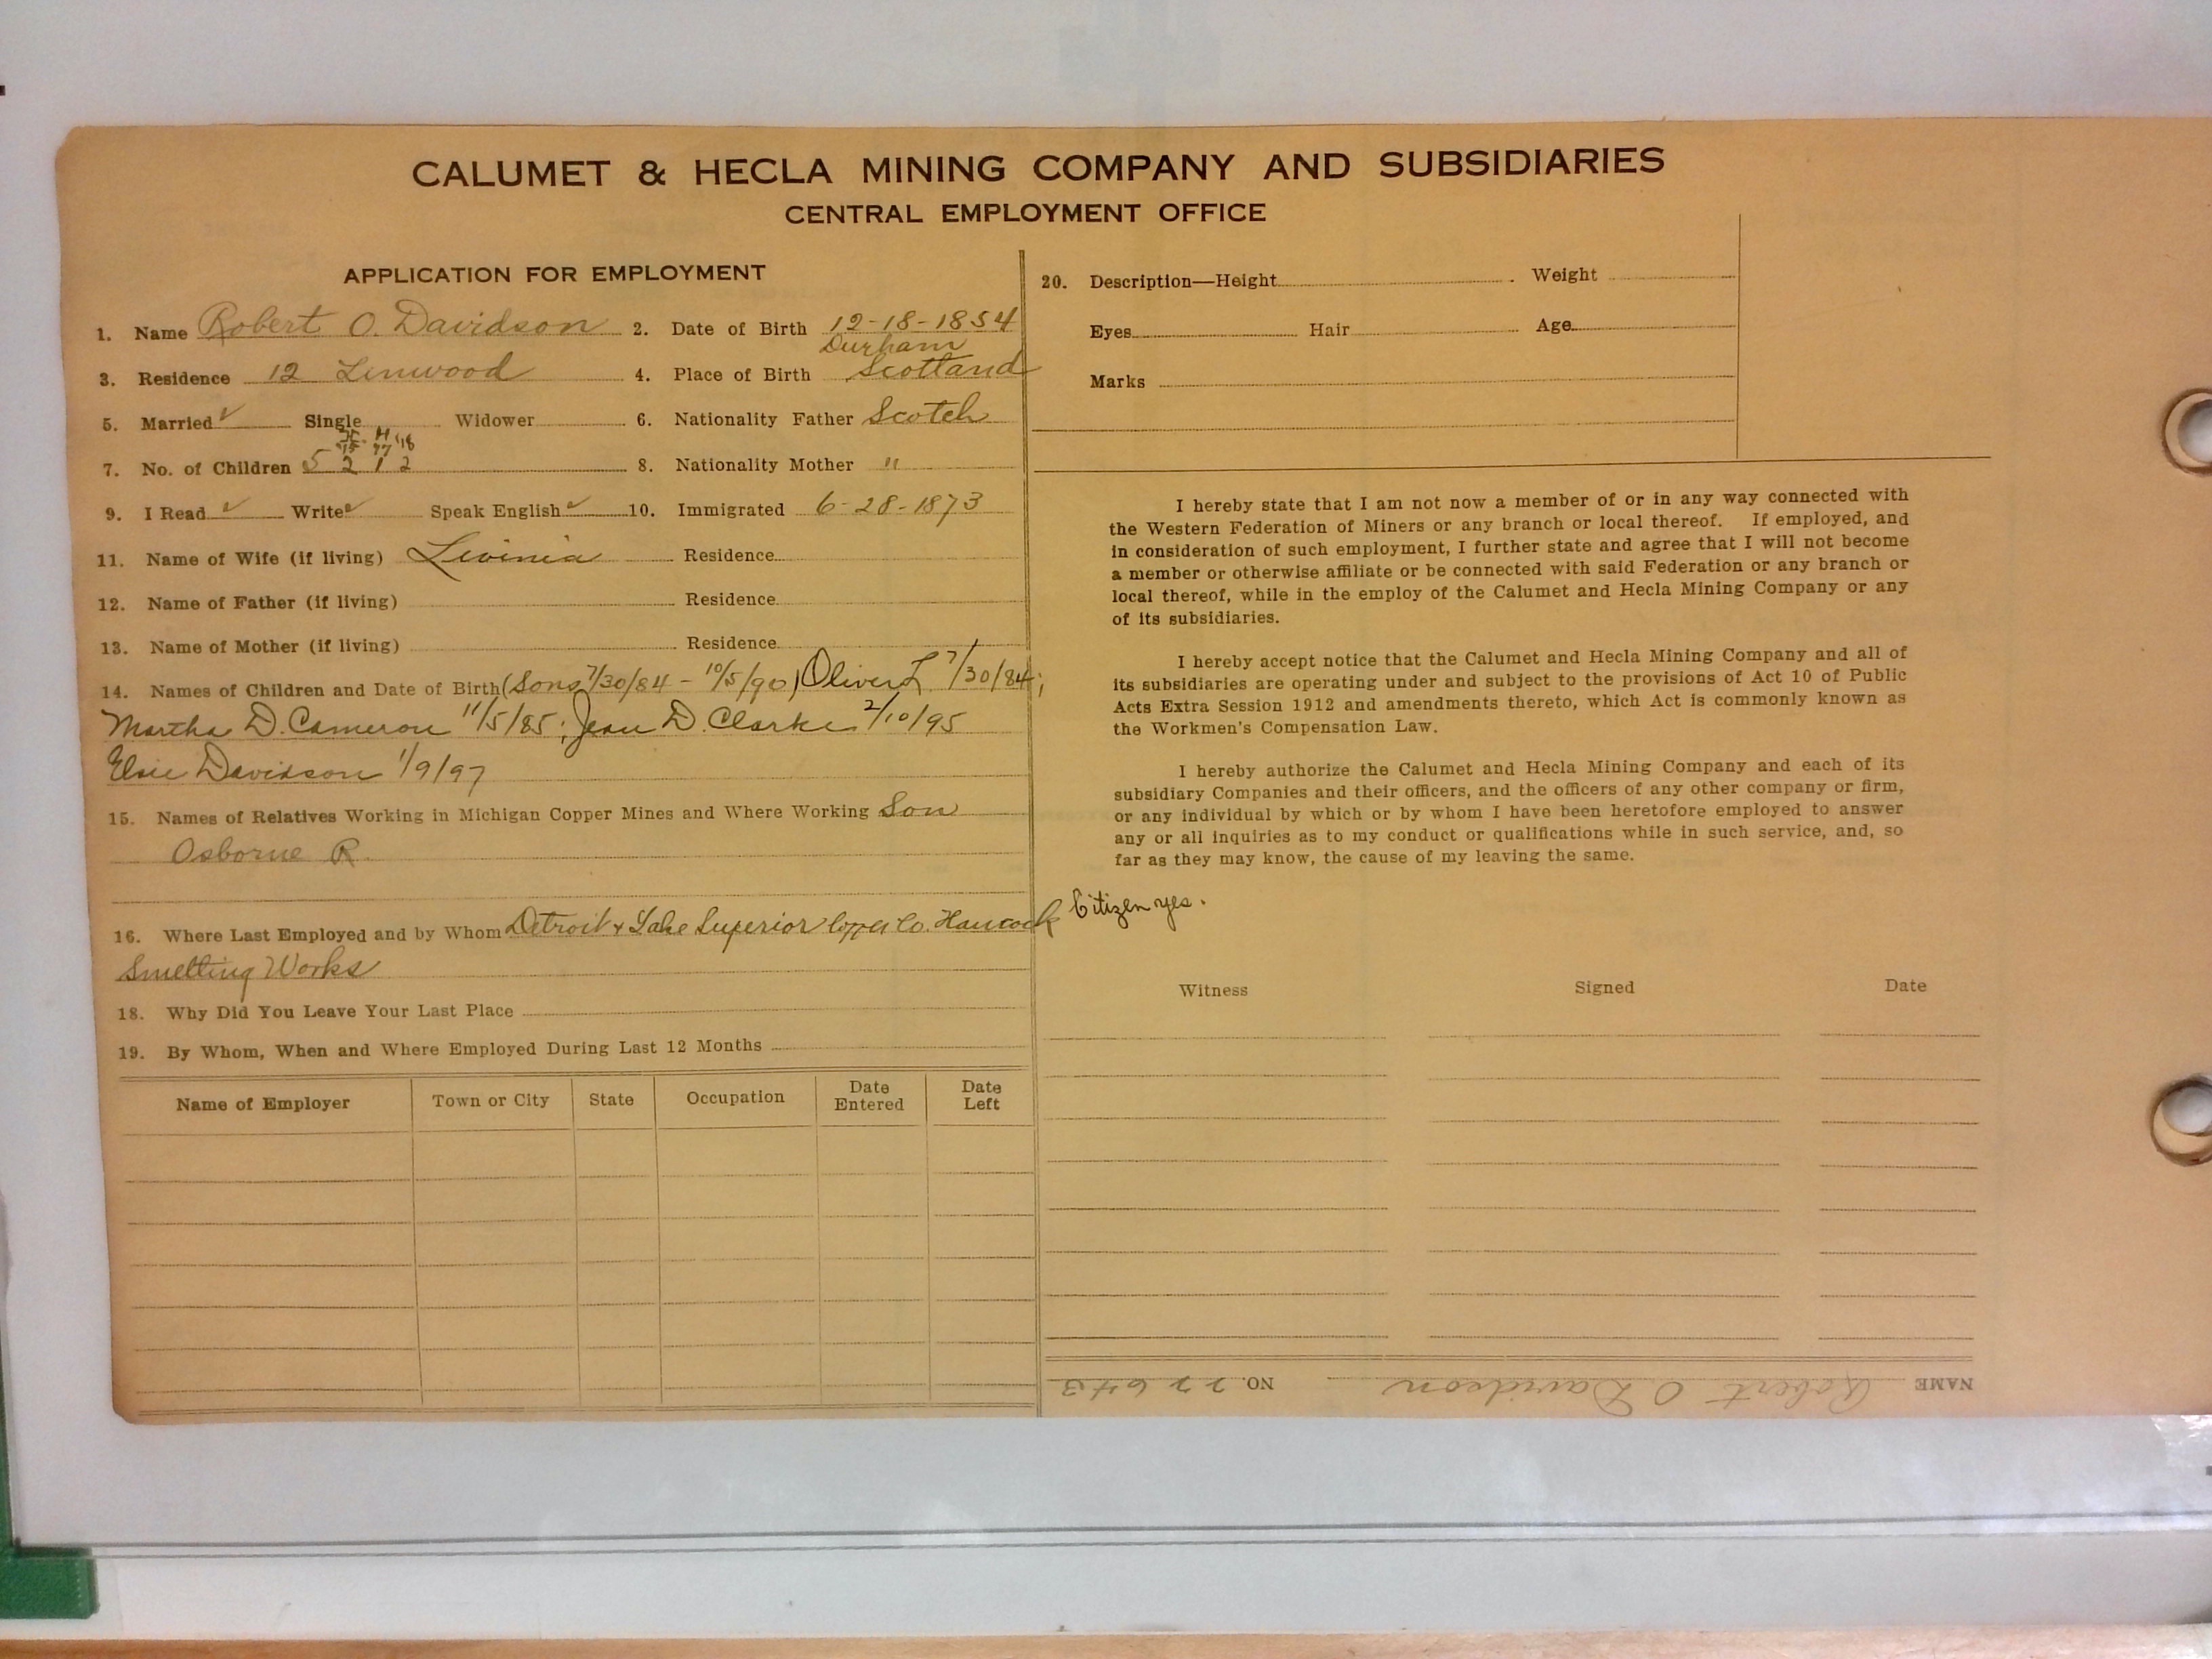 CALUMET & HECLA MINING COMPANY AND SUBSIDIARIES
CENTRAL EMPLOYMENT OFFICE
APPLICATION FOR EMPLOYMENT
1. Name Robert O. Davidson 2. Date of Birth 12-18-1854
Durham
3. Residence 12 Linwood 4. Place of Birth Scotland
5. Married ✓ Single Widower 6. Nationality Father Scotch
7. No. of Children 5 2 1 2 8. Nationality Mother "
9. I Read ✓ Write ✓ Speak English ✓ 10. Immigrated 6-28-1873
11. Name of Wife (if living) Livinia Residence
12. Name of Father (if living) Residence
13. Name of Mother (if living) Residence
14. Names of Children and Date of Birth (Sons 7/30/84 - 10/5/90) Oliver L 7/30/84;
Martha D. Cameron 11/5/85; Jean D. Clarke 2/10/95
Elsie Davidson 1/9/97
15. Names of Relatives Working in Michigan Copper Mines and Where Working Son
Osborne R.
16. Where Last Employed and by Whom Detroit & Lake Superior Copper Co. Hancock
Smelting Works
18. Why Did You Leave Your Last Place
19. By Whom, When and Where Employed During Last 12 Months
Name of Employer Town or City State Occupation Date Entered Date Left
20. Description—Height Weight
Eyes Hair Age
Marks
I hereby state that I am not now a member of or in any way connected with
the Western Federation of Miners or any branch or local thereof. If employed, and
in consideration of such employment, I further state and agree that I will not become
a member or otherwise affiliate or be connected with said Federation or any branch or
local thereof, while in the employ of the Calumet and Hecla Mining Company or any
of its subsidiaries.
I hereby accept notice that the Calumet and Hecla Mining Company and all of
its subsidiaries are operating under and subject to the provisions of Act 10 of Public
Acts Extra Session 1912 and amendments thereto, which Act is commonly known as
the Workmen's Compensation Law.
I hereby authorize the Calumet and Hecla Mining Company and each of its
subsidiary Companies and their officers, and the officers of any other company or firm,
or any individual by which or by whom I have been heretofore employed to answer
any or all inquiries as to my conduct or qualifications while in such service, and, so
far as they may know, the cause of my leaving the same.
Citizen yes.
Witness Signed Date
NAME Robert O. Davidson NO. 22643